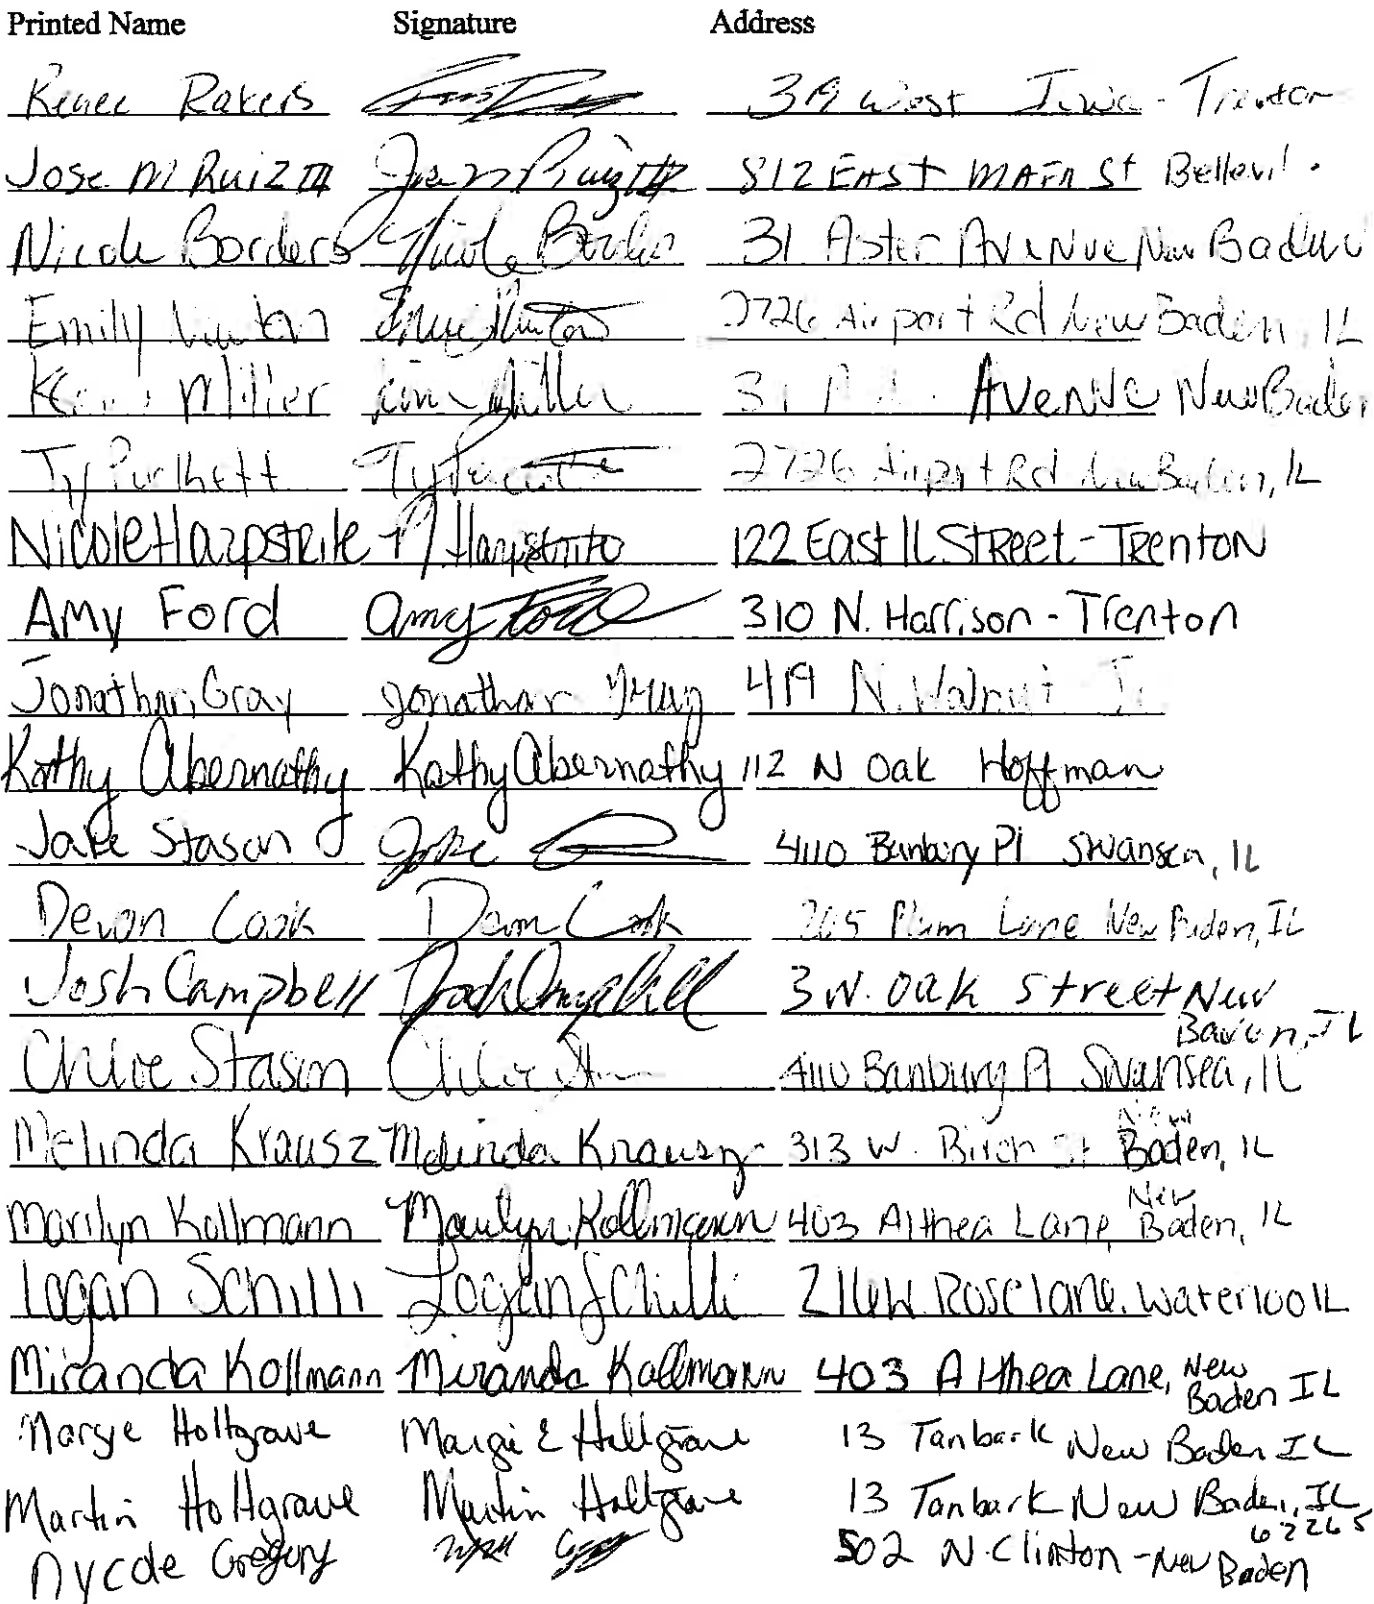 Printed Name Signature Address
Renee Rakers 319 West Iowa - Trenton
Jose M Ruiz III Jose M Ruiz III 812 EAST MAIN St Bellevil
Nicole Borders Nicole Borders 31 Aster Avenue New Baden
Emily Linton 2726 Airport Rd New Baden, IL
Miller Miller 31 Avenue New Baden
Ty Purkhett Ty 2726 Airport Rd New Baden, IL
Nicole Harpstrite N Harpstrite 122 East IL Street - Trenton
Amy Ford Amy Ford 310 N. Harrison - Trenton
Jonathan Gray Jonathan Gray 419 N. Walnut
Kathy Abernathy Kathy Abernathy 112 N Oak Hoffman
Jake Stason Jake 4110 Banbury Pl Swansea, IL
Devon Cook Devon Cook 265 Plum Lane New Baden, IL
Josh Campbell Josh Campbell 3 W. Oak Street New
Baden, IL
Chloe Stason Chloe 4110 Banbury Pl Swansea, IL
Melinda Krausz Melinda Krausz 313 W. Birch St New Baden, IL
Marilyn Kollmann Marilyn Kollmann 403 Althea Lane, New Baden, IL
Logan Schilli Logan Schilli 216 W. Rose lane. Waterloo IL
Miranda Kollmann Miranda Kollmann 403 Althea Lane, New Baden IL
Marge Holtgrave Margie E Holtgrave 13 Tanbark New Baden IL
Martin Holtgrave Martin Holtgrave 13 Tanbark New Baden, IL
62265
Nycole Gregory 502 N. Clinton - New Baden